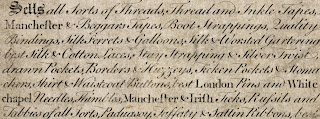 Sells all Sorts of Threads, Thread and Inkle Tapes,
Manchester & Beggars Tapes, Boot Strappings, Quality
Bindings, Silk Ferrets & Galloons, Silk & Worsted Gartering
best Silk & Cotton Laces, Stay Strapping & Silver Twist
drawn Pockets, Borders & Ticken Pockets & Stoma
chers, Shirt & Waistcoat Buttons, best London Pins and White
chapel Needles, Thimbles, Manchester & Irish Ticks, Russits and
Tabbies of all Sorts, Paduasoy, Taffaty & Sattin Ribbons, best